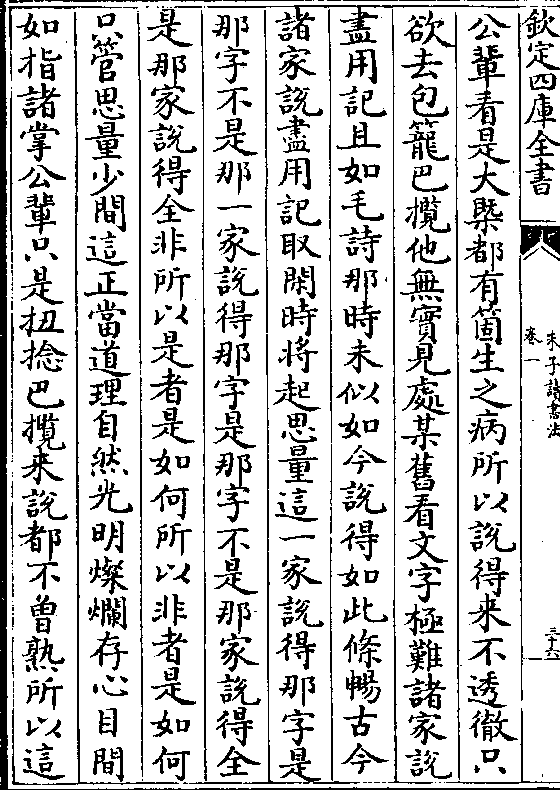 欽定四庫全書
朱子讀書法
卷一
三十六
公輩看是大槩都有箇生之病所以說得来不透徹只
欲去包籠巴攬他無實見處某舊看文字極難諸家說
盡用記且如毛詩那時未似如今說得如此條暢古今
諸家說盡用記取閑時將起思量這一家說得那字是
那字不是那一家說得那字是那字不是那家說得全
是那家說得全非所以是者是如何所以非者是如何
只管思量少間這正當道理自然光明燦爛存心目間
如指諸掌公輩只是扭捻巴攬来說都不曾熟所以這